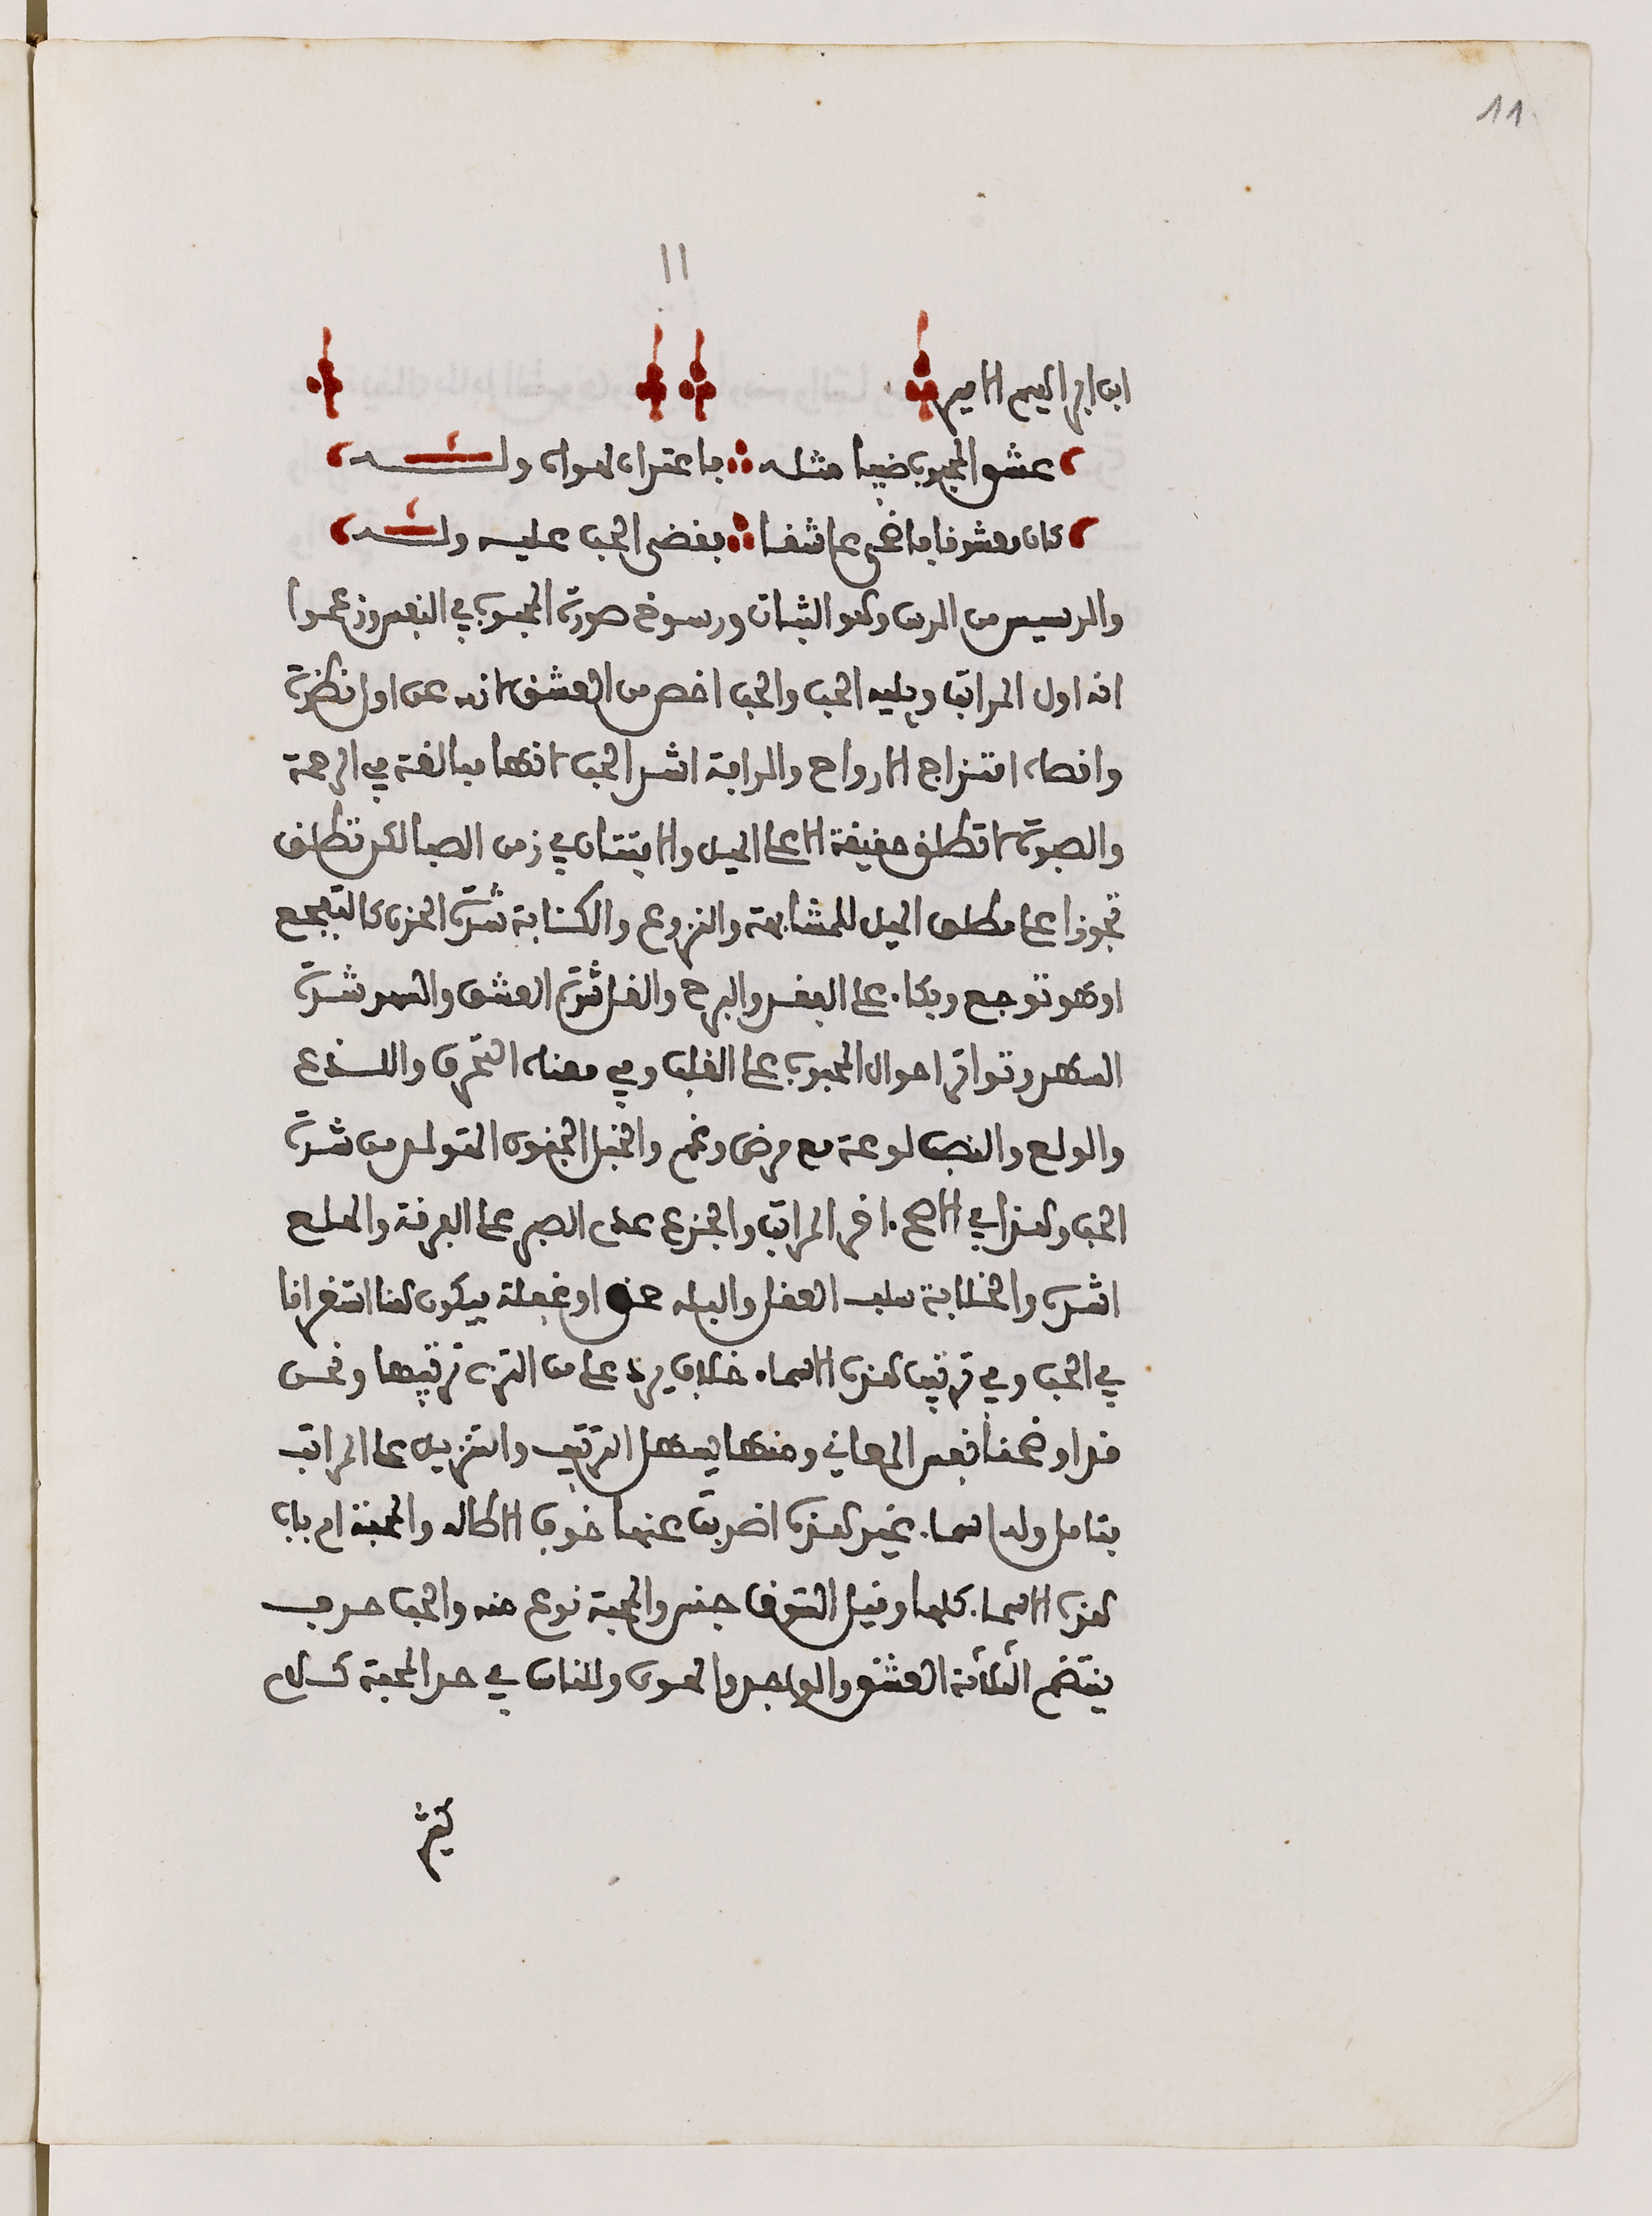 11
11
ابن ابراهيم الامير
عشق المحبوب ضبيا مثله فاعتراه لهواه وله
كان معشوقا فاضحى عاشقا فقضى الحب عليه وله
والرسيس من الرس وهو الثبات ورسوخ صورة المحبوب في النفس وزعموا
انه اول المراتب ويليه الحب والحب اخص من العشق لانه عن اول نظرة
وافصاه امتزاج الارواح والرافة اشد الحب لانها مبالغة في الرحمة
والصبوة لا تطلق حقيقة الا على الميل والافتتان في زمن الصبا لكن تطلق
تجوزا على مطلق الميل للمشابهة والنزوع والكئابة شدة الحزن كالتفجع
او هو توجع وبكاء على الفقد والبرح والغل شدة العشق والسهد شدة
السهر وتواتر احوال المحبوب على القلب وفي معناه التحرق واللذع
والولع والنصب لوعة مع مرض وغم والخبل الجنون المتولد من شدة
الحب وهذا في الاصح اخر المراتب والجزع عدم الصبر على الفرقة والهلع
اشده والخلابة سلب العقل والبله حمق او غفلة ويكون هنا استغراقا
في الحب وفي ترتيب هذه الاسماء خلاف يرد على من التزم ترتيبها ونحن
قد اوضحنا نفس المعاني ومنها يسهل الترتيب والتنزيل على المراتب
بتامل وله اسماء غير هذه اضربت عنها خوف الاطالة والمحبة ام باب
هذه الاسماء كلها وقيل الشوق جنس والمحبة نوع منه والحب حرف
ينتضم الثلاثة العشق والوجد والهوى وللناس في حد المحبة كلام
كثير